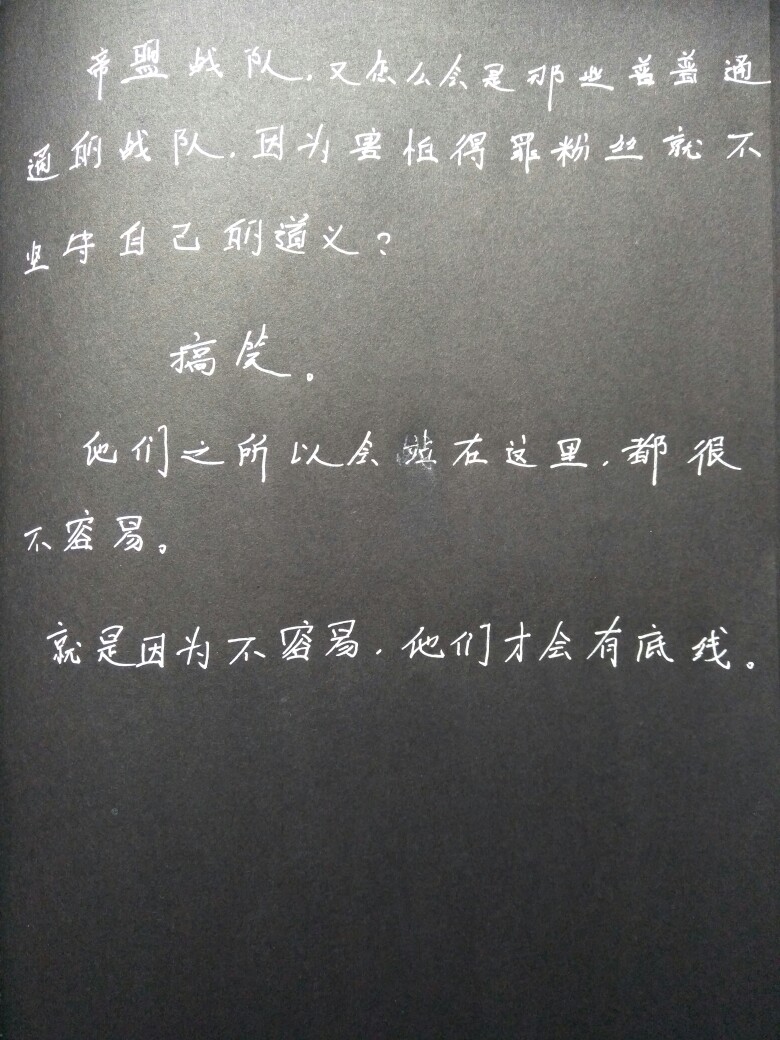 帝盟战队，又怎么会是那些普普通
通的战队，因为害怕得罪粉丝就不
坚守自己的道义？
搞笑。
他们之所以会站在这里，都很
不容易。
就是因为不容易，他们才会有底线。